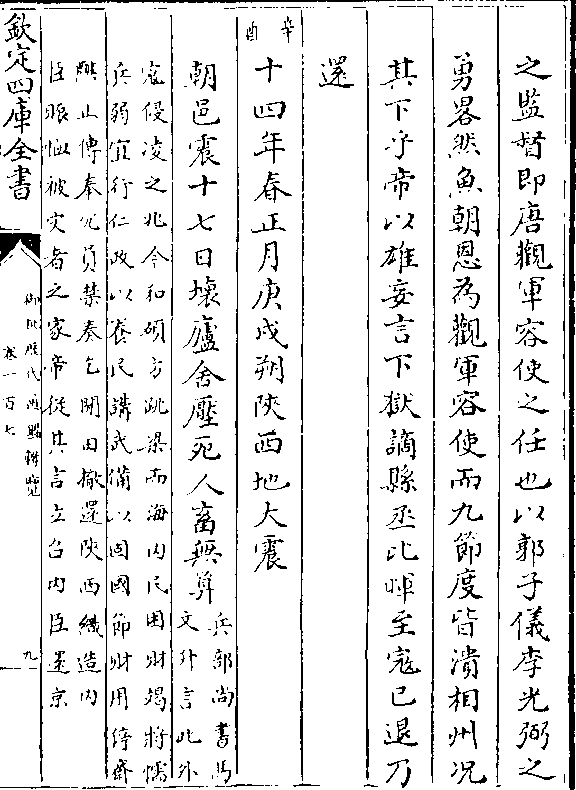 之監督即唐觀軍容使之任也以郭子儀李光弼之
勇畧然魚朝恩為觀軍容使而九節度皆潰相州况
其下乎帝以雄妄言下獄謫縣丞比暉至寇已退乃
還
辛酉
十四年春正月庚戌朔陜西地大震
朝邑震十七日壞廬舍壓死人畜無算
兵部尚書馬
文升言此外
寇侵凌之兆今和碩方跳梁而海内民困財竭將懦
兵弱宜行仁政以養民講武備以固國節財用停齋
醮止傳奉冗員禁奏乞閒田撤還陜西織造内
臣賑恤被灾者之家帝從其言立召内臣還京
欽定四庫全書
御批歴代通鑑輯覽
卷一百七
九